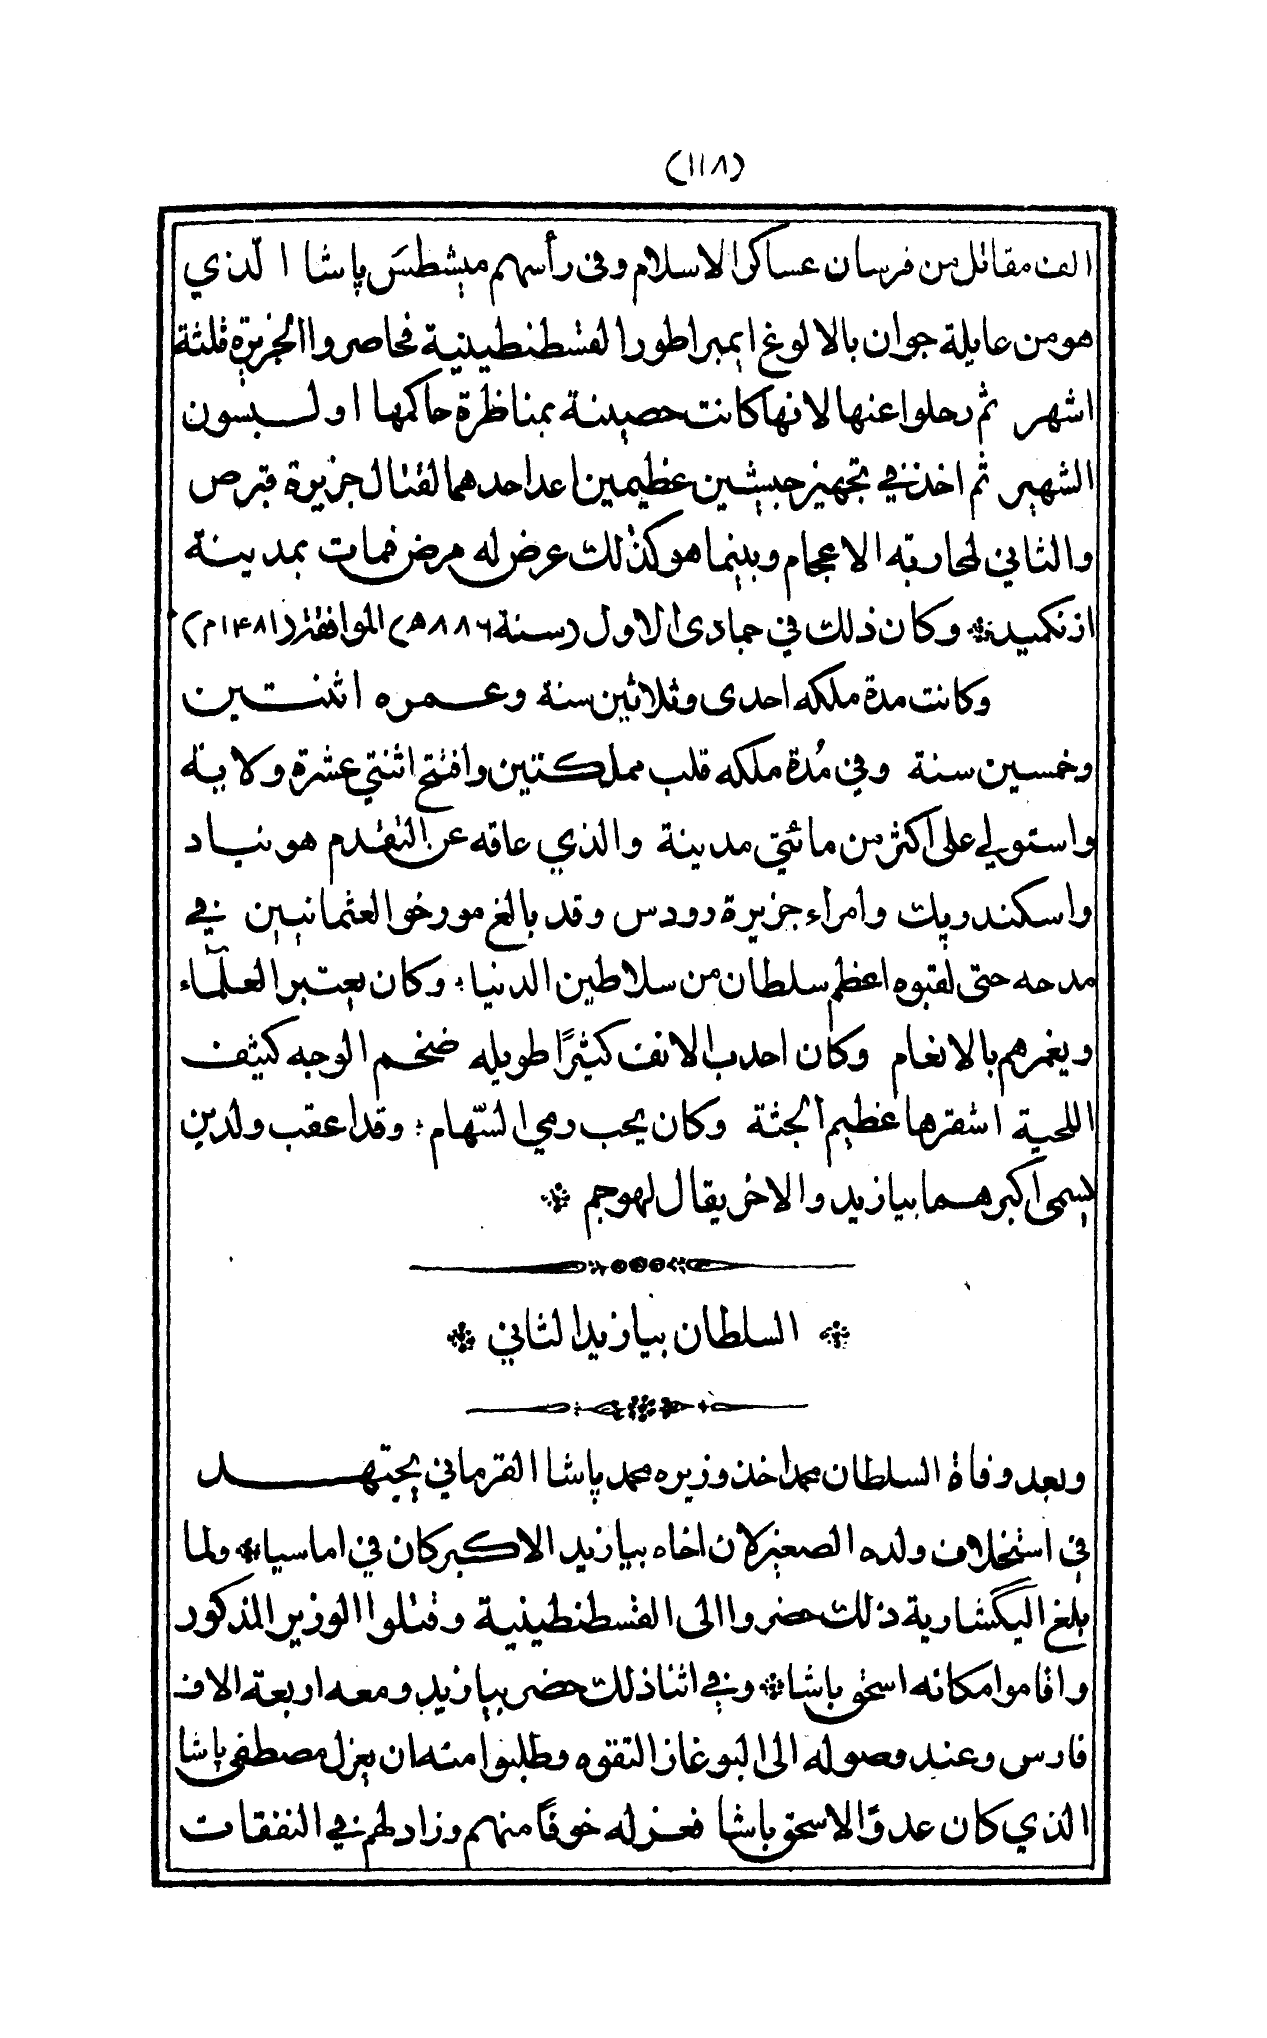 (١١٨)
الف مقاتل من فرسان عساكر الاسلام وفى رأسهم ميشطس پاشا الّذي
هو من عايلة جوان بالالوغ ايمبراطور القسطنطينية فحاصروا الجزيرة ثلثة
اشهر ثم رحلوا عنها لانها كانت حصينة بمناظرة حاكمها اولبسون
الشهير ثم اخذ في تجهيز جيشين عظيمين اعد احدهما لقتال جزيرة قبرص
والثاني لمحاربة الاعجام وبينما هو كذلك عرض له مرض فمات بمدينة
ازنكميد ❊ وكان ذلك في جمادى الاول (سنة ٨٨٦ هـ) الموافقة (١٤٨١ م)
وكانت مدة ملكه احدى وثلاثين سنة وعمره اثنتين
وخمسين سنة وفي مُدة ملكه قلب مملكتين وافتتح اثنتي عشرة ولاية
واستولي على اكثر من مائتي مدينة والذي عاقه عن التقدم هونياد
واسكندر بك وامراء جزيرة رودس وقد بالغ مورخو العثمانيين في
مدحه حتى لقبوه اعظم سلطان من سلاطين الدنيا : وكان يعتبر العلمآء
ويغمرهم بالانعام وكان احدب الانف كثيرًا طويله ضخم الوجه كثيف
اللحية اشقرها عظيم الجثة وكان يحب رمي السّهام : وقد اعقب ولدين
يسمى اكبرهما بيازيد والاخر يقال له وجم ❊
❊ السلطان بيازيد الثاني ❊
وبعد وفاة السلطان محمد اخذ وزيره محمد پاشا القرماني يجتهد
في استخلاف ولده الصغير لان اخاه بيازيد الاكبر كان في اماسيا ❊ ولما
بلغ اليكشارية ذلك حضروا الى القسطنطينية وقتلوا الوزير المذكور
واقاموا مكانه اسحق باشا ❊ وفي اثنا ذلك حضر بيازيد ومعه اربعة الاف
فارس وعند وصوله الى البوغاز التقوه وطلبوا منه ان يعزل مصطفى پاشا
الذي كان عدوًّا لاسحق باشا فعزله خوفًا منهم وزاد لهم في النفقات